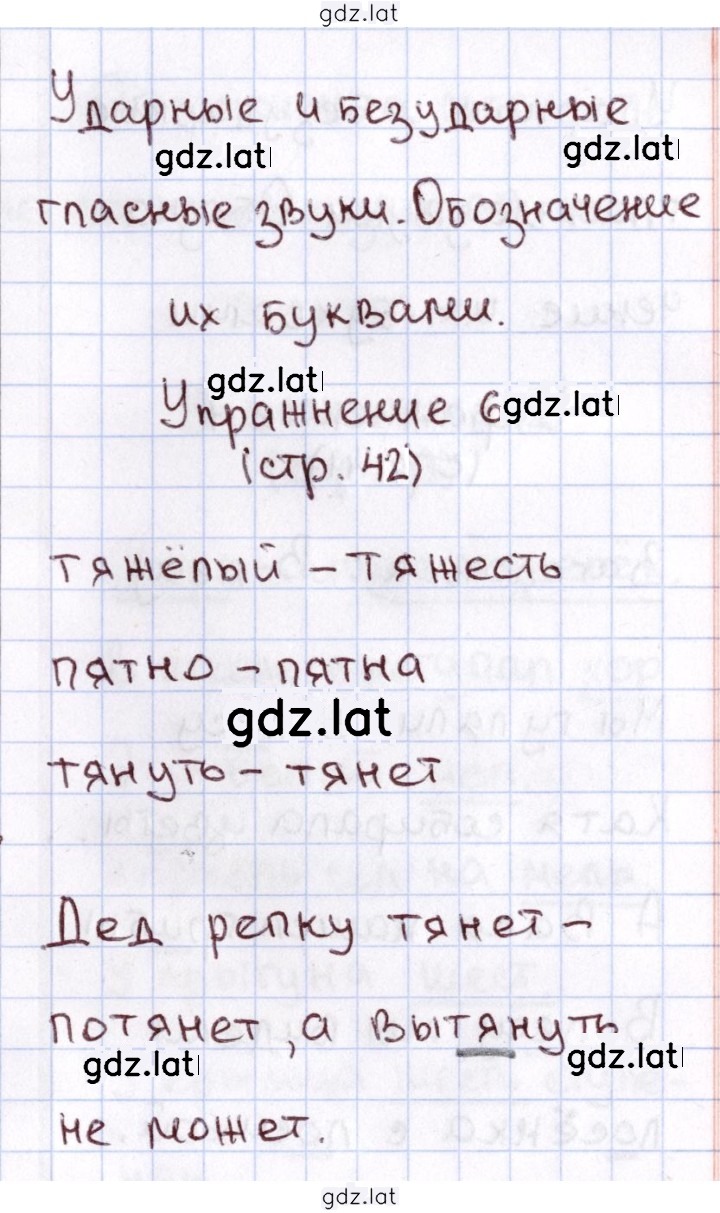 gdz.lat
Ударные и безударные
gdz.lat gdz.lat
гласные звуки. Обозначение
их буквами.
gdz.lat
Упражнение 6 gdz.lat
(стр. 42)
тяжёлый – тяжесть
пятно – пятна
gdz.lat
тянуть – тянет
Дед репку тянет –
потянет, а вытянуть
gdz.lat gdz.lat
не может.
gdz.lat